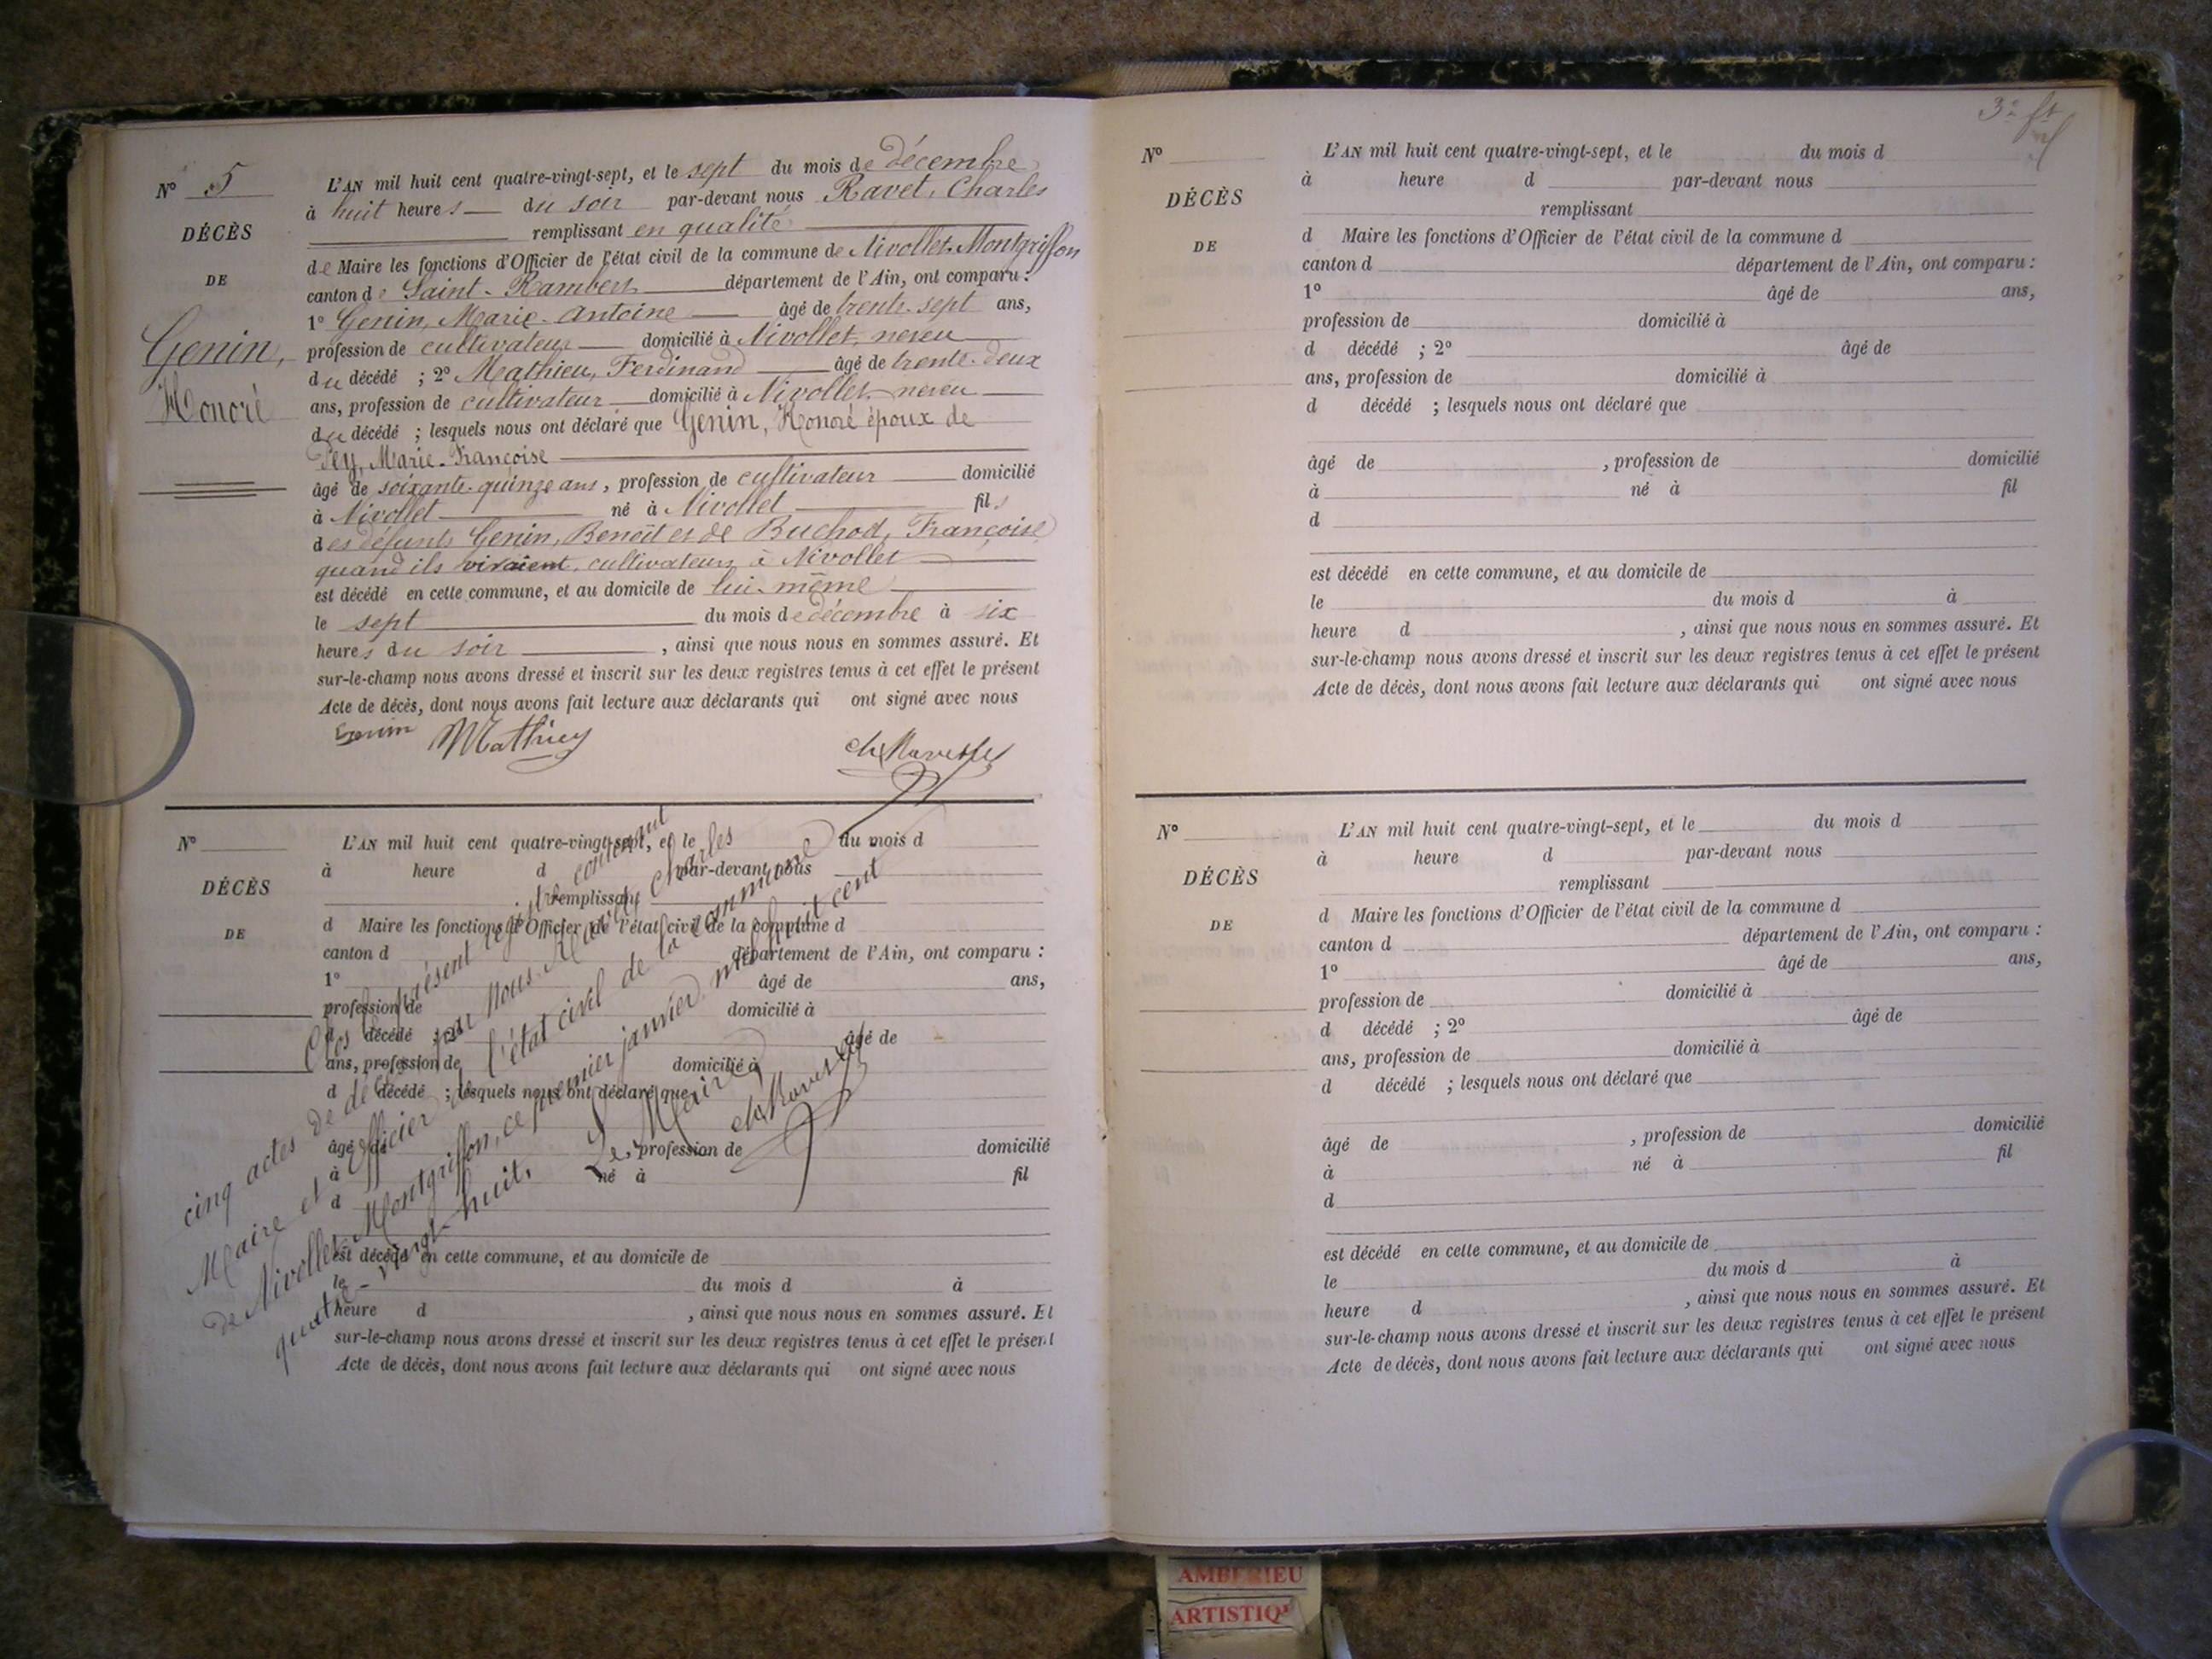 N° 5
DÉCÈS
DE
Genin,
Honoré
L'AN mil huit cent quatre-vingt-sept, et le sept du mois de décembre
à huit heures du soir par-devant nous Ravet, Charles
remplissant en qualité
de Maire les fonctions d'Officier de l'état civil de la commune de Nivollet-Montgriffon
canton de Saint-Rambert département de l'Ain, ont comparu :
1° Genin, Marie-Antoine âgé de trente-sept ans,
profession de cultivateur domicilié à Nivollet, neveu
du décédé ; 2° Mathieu, Ferdinand âgé de trente-deux
ans, profession de cultivateur domicilié à Nivollet, neveu
du décédé ; lesquels nous ont déclaré que Genin, Honoré époux de
Pey, Marie-Françoise
âgé de soixante-quinze ans, profession de cultivateur domicilié
à Nivollet né à Nivollet fils
des défunts Genin, Benoît et de Buchod, Françoise
quand ils vivaient, cultivateurs à Nivollet
est décédé en cette commune, et au domicile de lui-même
le sept du mois de décembre à six
heures du soir , ainsi que nous nous en sommes assuré. Et
sur-le-champ nous avons dressé et inscrit sur les deux registres tenus à cet effet le présent
Acte de décès, dont nous avons fait lecture aux déclarants qui ont signé avec nous
Genin Mathieu
N°
DÉCÈS
DE
L'AN mil huit cent quatre-vingt-sept, et le du mois d
à heure d par-devant nous
remplissant
d Maire les fonctions d'Officier de l'état civil de la commune d
canton d département de l'Ain, ont comparu :
1° âgé de ans,
profession de domicilié à
d décédé ; 2° âgé de
ans, profession de domicilié à
d décédé ; lesquels nous ont déclaré que
âgé de , profession de domicilié
à né à fil
d
est décédé en cette commune, et au domicile de
le du mois d à
heure d , ainsi que nous nous en sommes assuré. Et
sur-le-champ nous avons dressé et inscrit sur les deux registres tenus à cet effet le présent
Acte de décès, dont nous avons fait lecture aux déclarants qui ont signé avec nous
Clos le présent registre contenant
cinq actes de décès par nous Ravet, Charles
Maire et officier de l'état civil de la commune
de Nivollet-Montgriffon, ce premier janvier mil huit cent
quatre-vingt-huit.
Le Maire
N°
DÉCÈS
DE
L'AN mil huit cent quatre-vingt-sept, et le du mois d
à heure d par-devant nous
remplissant
d Maire les fonctions d'Officier de l'état civil de la commune d
canton d département de l'Ain, ont comparu :
1° âgé de ans,
profession de domicilié à
d décédé ; 2° âgé de
ans, profession de domicilié à
d décédé ; lesquels nous ont déclaré que
âgé de , profession de domicilié
à né à fil
d
est décédé en cette commune, et au domicile de
le du mois d à
heure d , ainsi que nous nous en sommes assuré. Et
sur-le-champ nous avons dressé et inscrit sur les deux registres tenus à cet effet le présent
Acte de décès, dont nous avons fait lecture aux déclarants qui ont signé avec nous
N°
DÉCÈS
DE
L'AN mil huit cent quatre-vingt-sept, et le du mois d
à heure d par-devant nous
remplissant
d Maire les fonctions d'Officier de l'état civil de la commune d
canton d département de l'Ain, ont comparu :
1° âgé de ans,
profession de domicilié à
d décédé ; 2° âgé de
ans, profession de domicilié à
d décédé ; lesquels nous ont déclaré que
âgé de , profession de domicilié
à né à fil
d
est décédé en cette commune, et au domicile de
le du mois d à
heure d , ainsi que nous nous en sommes assuré. Et
sur-le-champ nous avons dressé et inscrit sur les deux registres tenus à cet effet le présent
Acte de décès, dont nous avons fait lecture aux déclarants qui ont signé avec nous
AMBERIEU
ARTISTIQ